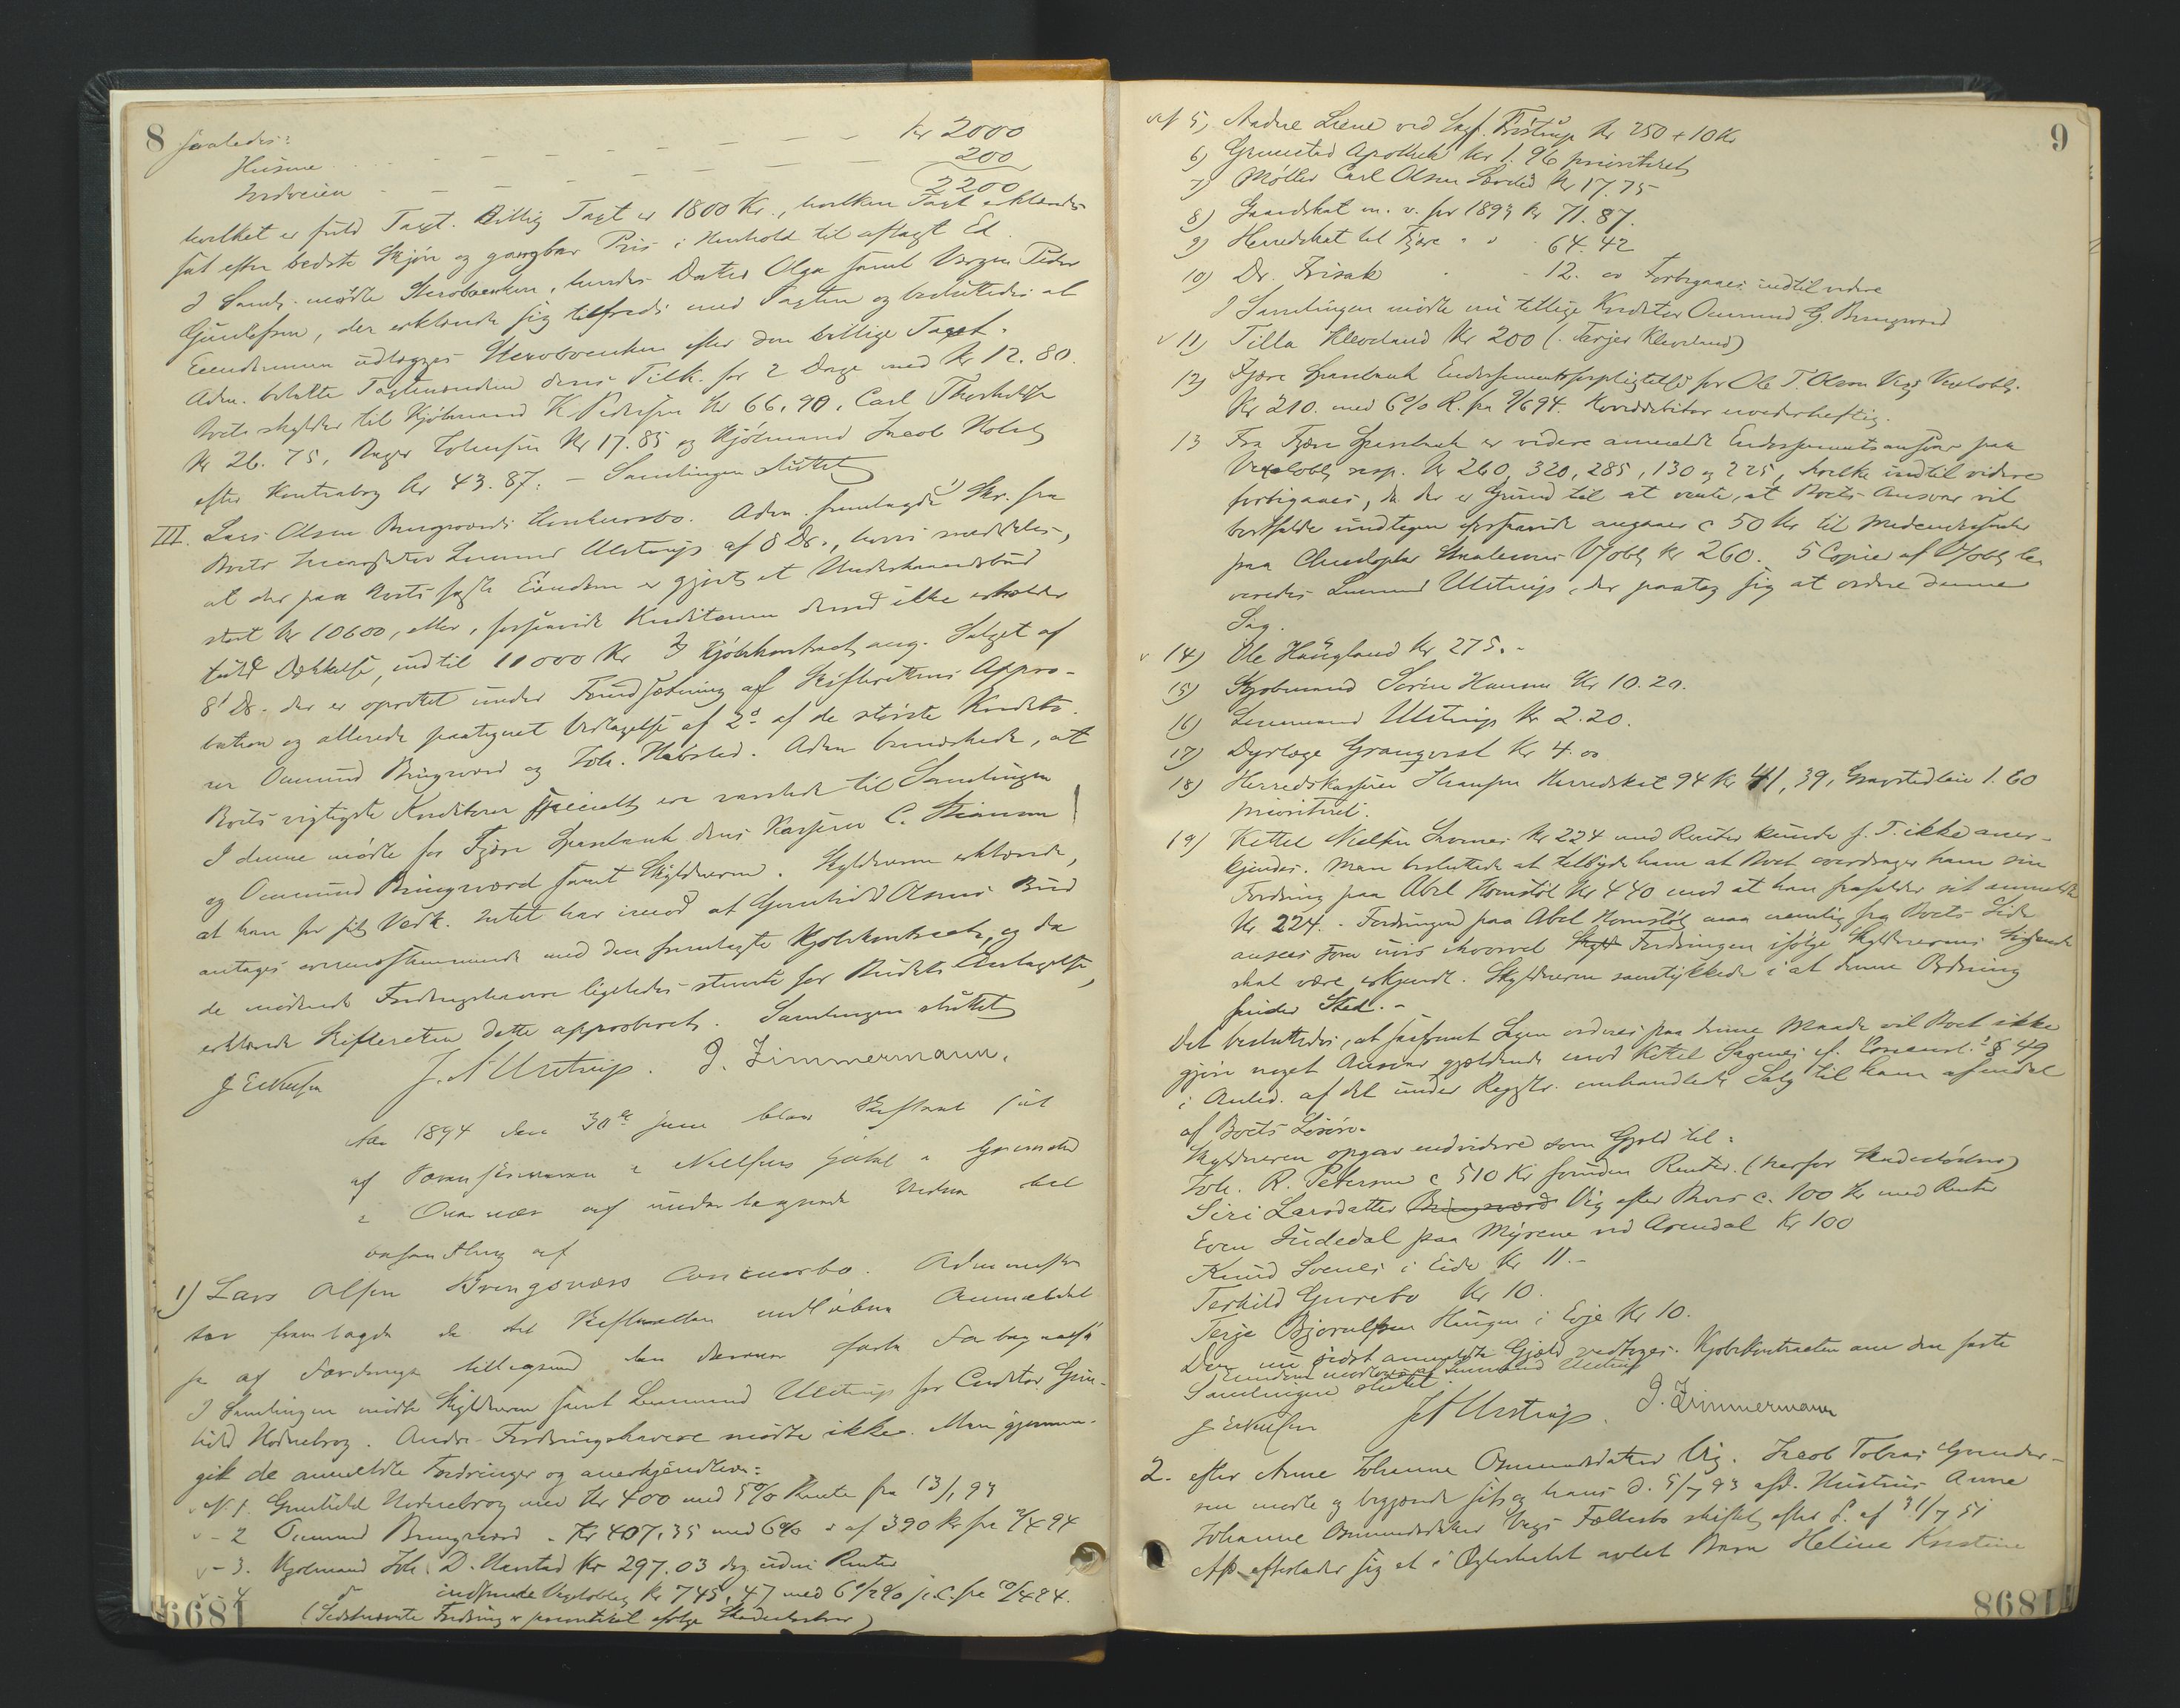 8 saaledes:
Husene - - - kr 2000
Jordveien - - - 200
2200
hvilket er fuld Taxt. Billig Taxt er 1800 Kr., hvilken Taxt erklæredes
sat efter bedste Skjøn og gangbar Pris i Henhold til aflagt Ed.
I Saml. mødte Sterboenken, hendes Datter Olga samt Værgen Peder
Gundersen, der erklærede sig tilfreds med Taxten og besluttedes at
Eiendommen udlægges Sterboenken efter den billige Taxt.
Adm. betalte Taxtmændene deres Tilk. for 2 Dage med Kr 12.80.
Boet skylder til Kjøbmand K. Pedersen Kr 66,90, Carl Thorkildsen
Kr 26.75, Bager Tobiesen Kr 17.85 og Kjøbmand Jacob Holst
efter Kontrabog Kr 43.87. - Samlingen sluttet
III. Lars Olsen Bringsværds Konkursbo. Adm. fremlagde Skr. fra
Boets Inkassator Lensmd Ulstrup af 8 Ds., hvori meddeles,
at der paa Boets faste Eiendom er gjort et Underhaandsbud
stort Kr 10600, eller, forsaavidt Kreditorerne derved ikke erholder
fuld Dækkelse, indtil 11000 Kr. Kjøbekontract ang. Salget af
8' Ds. der er oprettet under Forudsætning af Skifterettens Appro-
bation og allerede paategnet Vedtagelse af 2de af de største Kredito-
rer Osmund Bringsværd og Joh. Habstad. Adm. bemærkede, at
Boets vigtigste Kreditorer specielt ere varslede til Samlingen
I denne mødte for Fjære Sparebank dens Kasserer C.
og Osmund Bringsværd samt Skyldneren. Skyldneren erklærede,
at han for sit Vedk. intet har imod at Gunhild Olsens Bud
antages overensstemmende med den fremlagte Kjøbekontract, og da
de mødende Fordringshavere ligeledes stemte for Budets Antagelse,
erklærede Skifteretten dette approberet. Samlingen sluttet
J. A. Ulstrup. J. Zimmermann.
Aar 1894 den 30te juni blev Skifteret sat
af Sorenskriveren i Nielsens Hotel i Grimstad
i Overvær af undertegnede Vidner til
Behandling af
1) Lars Olsen Bringsværs Concursbo. Administra-
tor fremlagde de til Skifteretten indløbne Anmeldel-
ser af Fordringer tilligemed
I Samlingen mødte Skyldneren samt Lensmand Ulstrup for Creditor Gun-
hild Hodnebrog. Andre Fordringshavere mødte ikke. Man gjennem-
gik de anmeldte Fordringer og anerkjendtes:
No 1. Gunhild Hodnebrog med Kr 400 med 5% Rente fra 13/1 93
- 2 Osmund Bringsværd - Kr 407,35 med 6% af 390 kr fra
- 3. Kjøbmand Joh. D. Kr 297.03 dog uden Renter
4 Kr 745,47 med 6 %
(Sidstnævnte Fordring er prioriteret ifølge Skadesløsbrev)
6681
9
No 5, Andre Liene ved Sagf. Kr 250 + 10 Kr
6) Grimstad Apothek Kr 1.96 prioriteret
7) Møller Carl Olsen Kr 17.75
8) Landskat m. v. for 1893 Kr 71.87.
9) Herredskat til Fjære - 64.42
10) Dr. Frisak - 12. - Forbigaaes indtil videre
I Samlingen mødte nu tillige Kreditor Osmund G. Bringsværd
11) Tilla Kleveland Kr 200 (Terjer Kleveland)
12) Fjære Sparebank Endossementsforpligtelse for Ole T. Olsen Vegs Vexelobl.
Kr 210. med 6% R. fra 9/6 94. Hoveddebitor uvederheftig.
13 Fra Fjære Sparebank er videre anmeldt Endossementsansvar paa
Vexelobl. resp. Kr 260, 320, 285, 130 og 225, hvilke indtil videre
forbigaaes, da der er Grund til at vente, at Boets Ansvar vil
bortfalde undtagen forsaavidt angaar c 50 Kr til
paa Christopher V/obl. Kr 260. 5 Copier af V/obl. le-
veredes Lensmd Ulstrup, der paatog sig at ordne denne
Sag.
14) Ole Haugland Kr 275.-
15) Kjøbmand Søren Hansen Kr 10.20.
16) Lensmand Ulstrup Kr 2.20.
17) Dyrlæge Granqvist Kr 4.00
18) Herredskasserer Herredskat 94 Kr 41,39, Gravstedleie 1.60
prioriteret.
19) Kittel Nielsen Kr 224 med Renter kunde f. T. ikke aner-
kjendes. Man besluttede at tilbyde ham at Boet overdrager ham sin
Fordring paa Abel Homstøl Kr 440 mod at han frafalder sit anmeldte
Kr. 224. - Fordringen paa Abel Homstøl maa nemlig fra Boets Side
ansees som uvis ihvorvel Fordringen ifølge Skyldnerens Sigende
skal være erkjendt. Skyldneren samtykkede i at denne Ordning
finder Sted. -
Det besluttedes, at saafremt Sagen ordnes paa denne Maade vil Boet ikke
gjøre noget Ansvar gjældende mod Kittel cf. Concursl. § 49
i Anled. af det under Registr. omhandlede Salg til ham af endel
af Boets Løsøre.
Skyldneren opgav endvidere som Gjæld til:
Joh. R. Petersen c 510 Kr foruden Renter. (herfor Skadesløsbrev)
Siri Larsdatter Bringsværd Vig efter Bevis c. 100 Kr med Renter
Even Judedal paa Myrene ved Arendal Kr 100
Knud Svenes i Eide Kr 11.-
Terkild Gurebo Kr 10.
Terje Bjorulfsen Haugen i Evje Kr 10.
Den nu sidst anmeldte Gjæld vedtoges. Kjøbekontracten om den faste
Eiendom modtoges af Lensmand Ulstrup
Samlingen sluttet.
J. A. Ulstrup. J. Zimmermann
2. efter Anne Johanne Osmundsdatter Vig. Jacob Tobias Gunder-
sen mødte og begjærede sit og hans d. 5/7 93 afd. Hustrus Anne
Johanne Osmundsdatter Vegs Fællesbo skiftet efter L. af 31/7 51
Afd. efterlader sig et i Ægteskabet avlet Barn Heline Kristine
86811